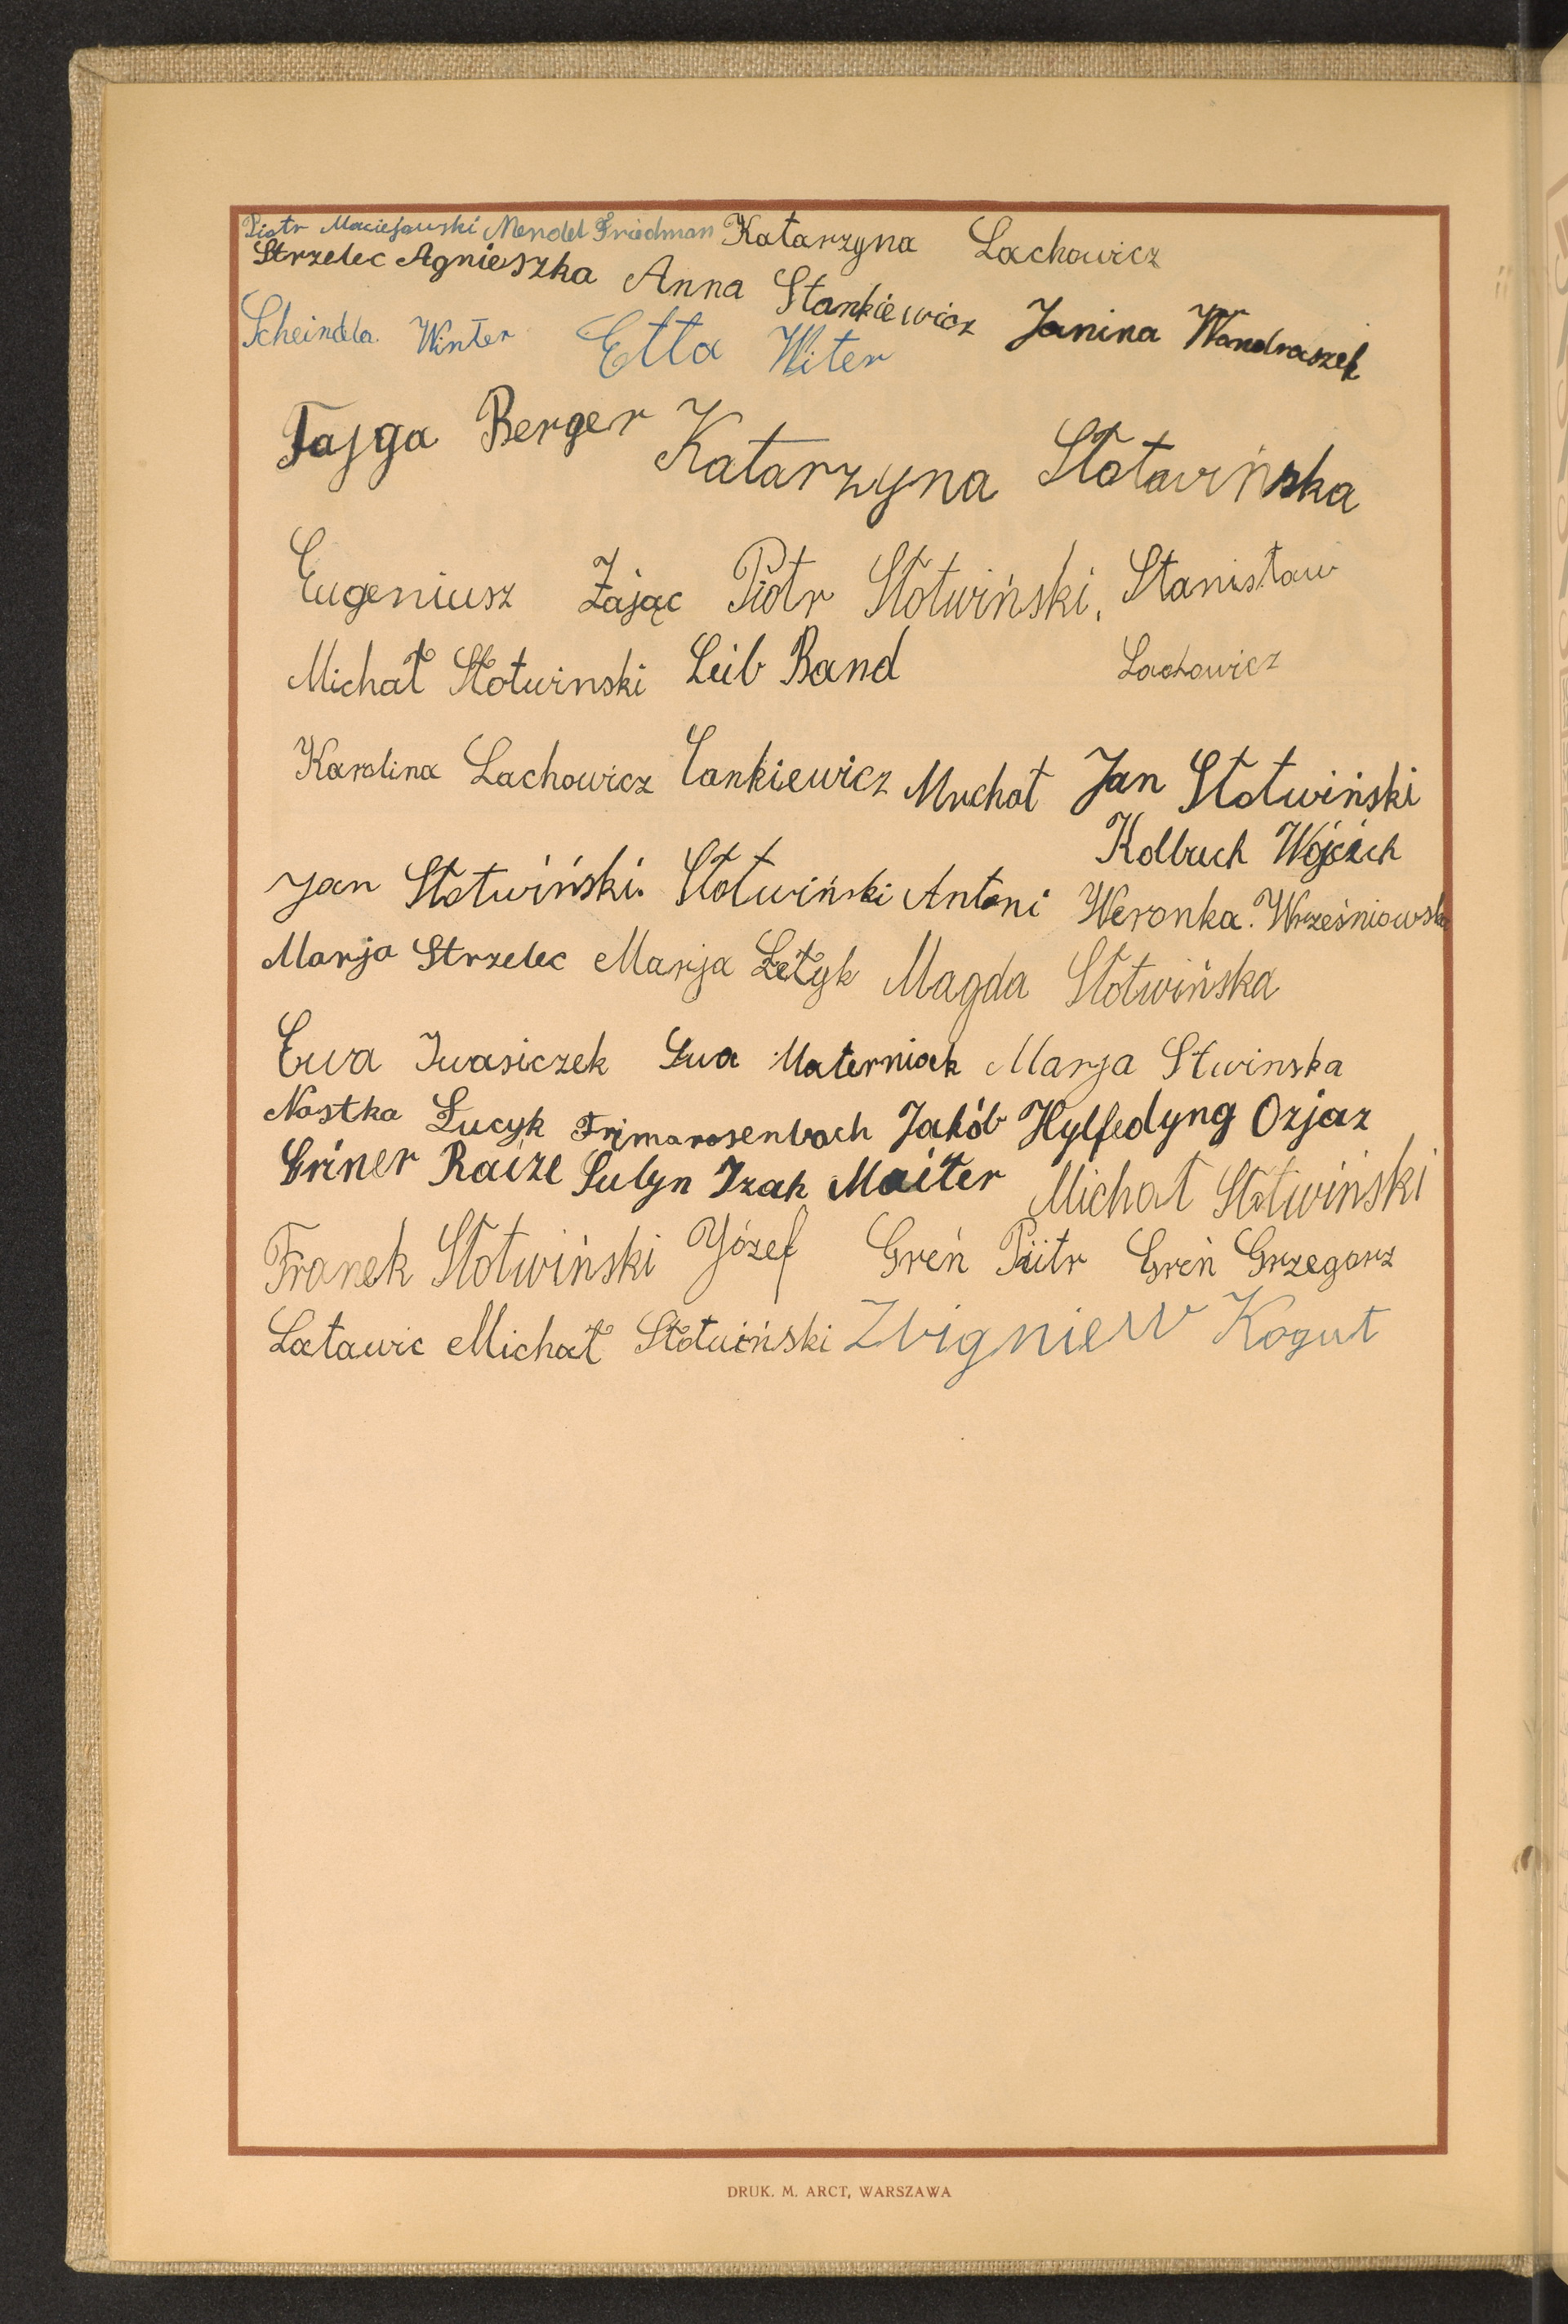 Piotr Maciejowski Mendel Friedman Katarzyna Lachowicz
Strzelec Agnieszka Anna Stankiewicz Janina Wandraszek
Scheindla Winter Etta Witer
Fajga Berger Katarzyna Słotwińska
Eugeniusz Zając Piotr Słotwiński, Stanisław
Michał Słotwinski Leib Band Lachowicz
Karolina Lachowicz Cankiewicz Michał Jan Słotwiński
Kolbuch Wójcich
Jan Słotwiński. Słotwiński Antoni Weronka. Wrześniowska
Marja Strzelec Marja Łetyk Magda Słotwińska
Ewa Iwasiczek Ewa Materniak Marja Stwinska
Nastka Łucyk Frimarosenbach Jakób Hylfedyng Ozjaz
Griner Raize Sulyn Izak Maiter Michał Słotwiński
Franek Słotwiński Józef Greń Piitr Greń Grzegorz
Latawic Michał Słotwiński Zbigniew Kogut
DRUK. M. ARCT, WARSZAWA